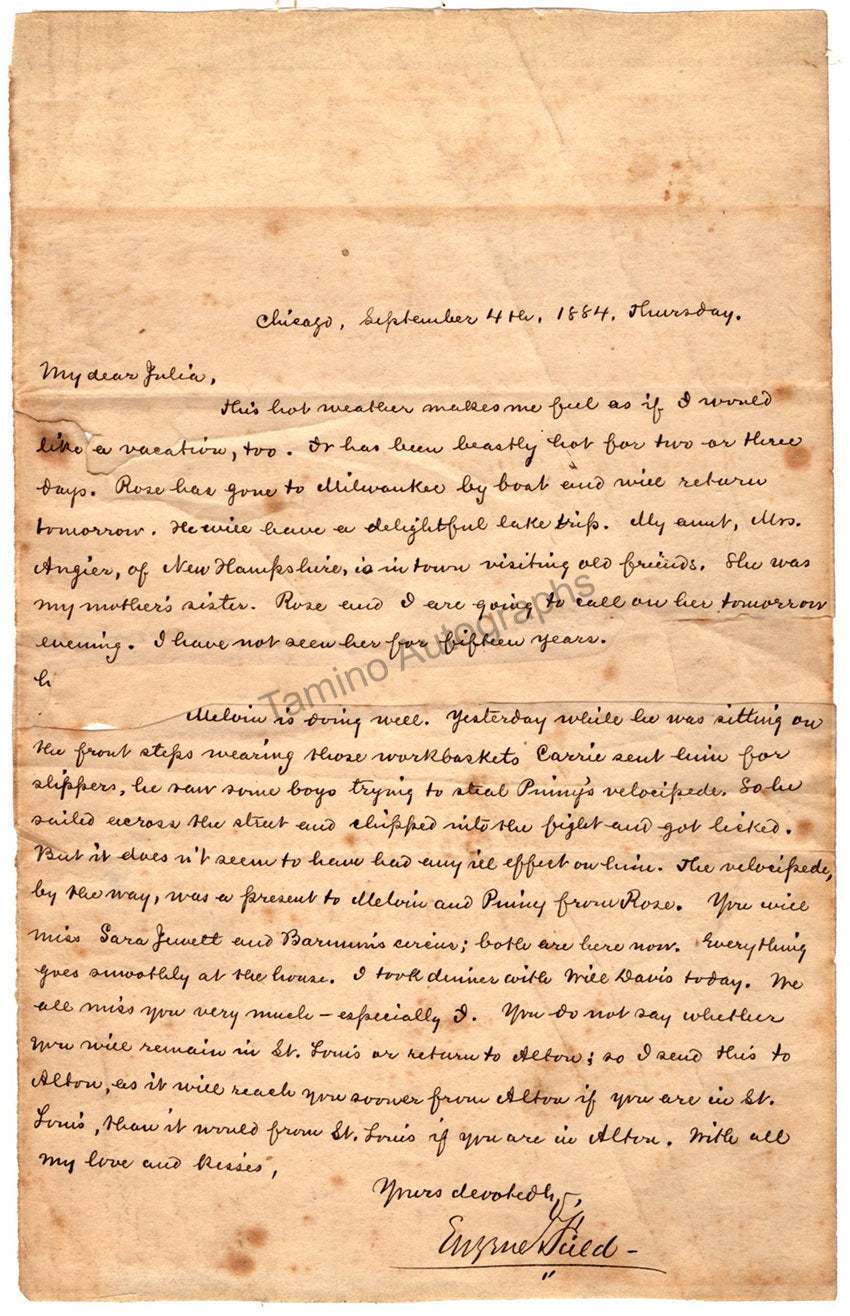 Chicago, September 4th, 1884, Thursday.
My dear Julia,
This hot weather makes me feel as if I would
like a vacation, too. It has been beastly hot for two or three
days. Rose has gone to Milwaukee by boat and will return
tomorrow. He will have a delightful lake trip. My aunt, Mrs.
Angier, of New Hampshire, is in town visiting old friends. She was
my mother's sister. Rose and I are going to call on her tomorrow
evening. I have not seen her for fifteen years.
Tamino Autographs
Melvin is doing well. Yesterday while he was sitting on
the front steps wearing those workbaskets Carrie sent him for
slippers, he saw some boys trying to steal Pinny's velocipede. So he
sailed across the street and chipped into the fight and got licked.
But it does n't seem to have had any ill effect on him. The velocipede,
by the way, was a present to Melvin and Pinny from Rose. You will
miss Sara Jewett and Barnum's circus; both are here now. Everything
goes smoothly at the house. I took dinner with Will Davis today. We
all miss you very much – especially I. You do not say whether
you will remain in St. Louis or return to Alton; so I send this to
Alton, as it will reach you sooner from Alton if you are in St.
Louis, than it would from St. Louis if you are in Alton. With all
my love and kisses,
Yours devotedly,
Eugene Field –